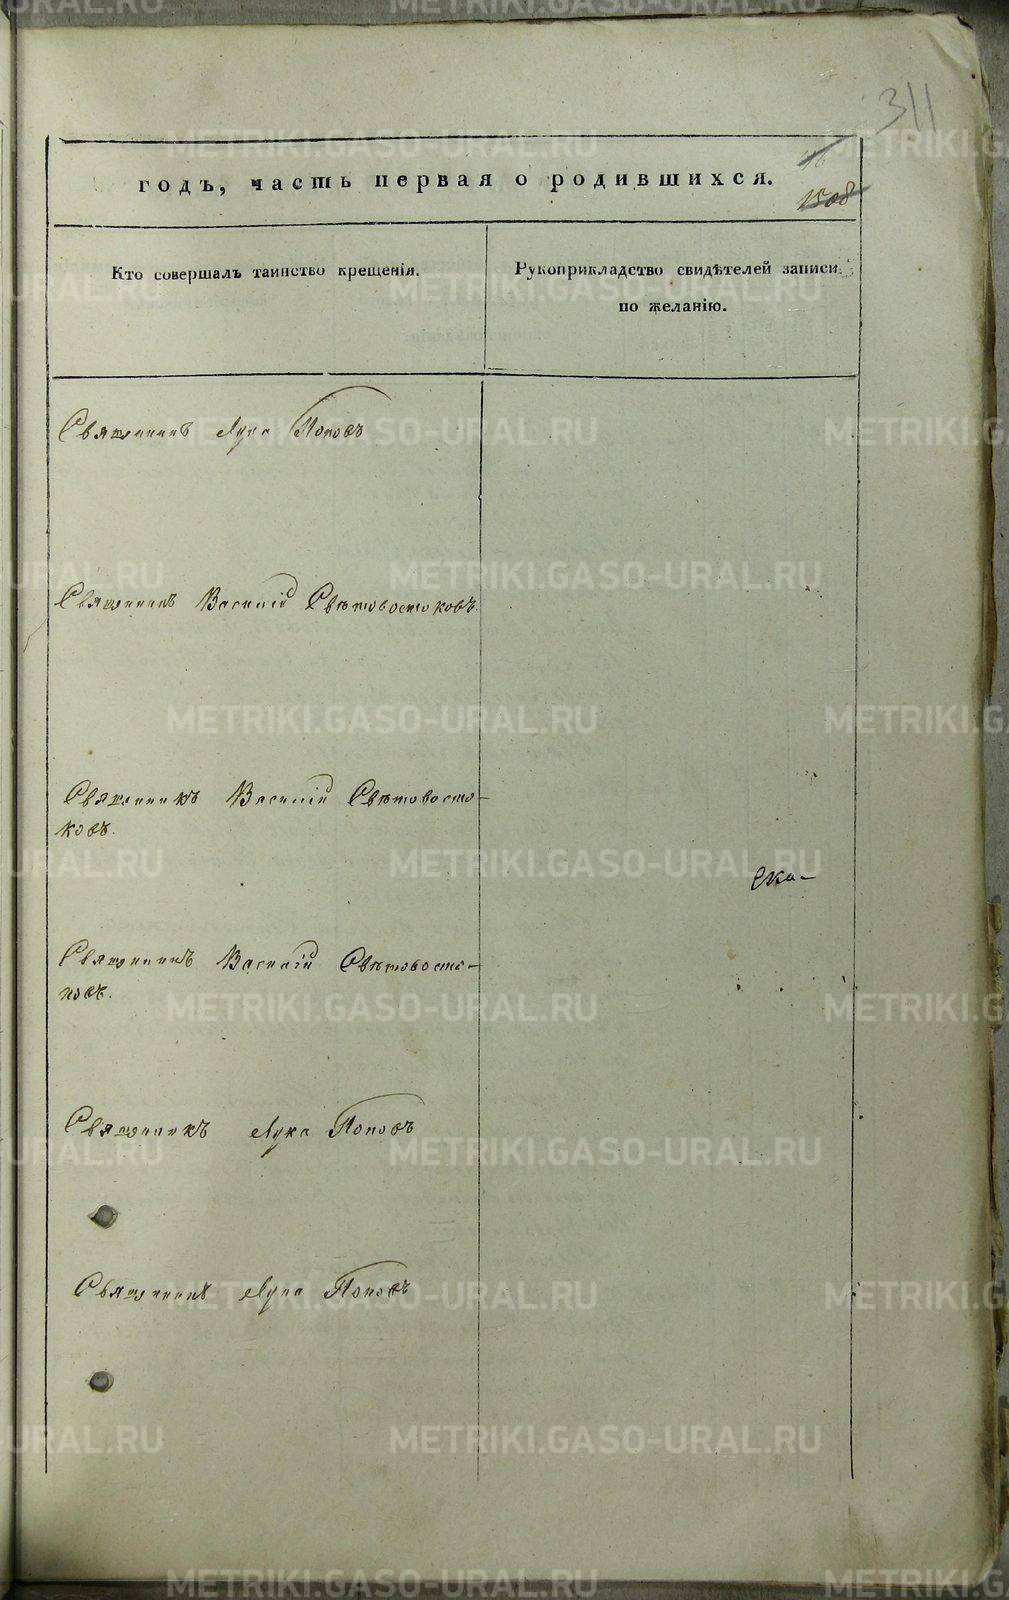 311
годъ, часть первая о родившихся.
1508
Кто совершалъ таинство крещенія.
Рукоприкладство свидѣтелей записи
по желанію.
Священникъ Лука Поповъ
Священникъ Василій Свѣтовостоковъ.
Священникъ Василій Свѣтовосто-
ковъ.
Священникъ Василій Свѣтовосто-
ковъ.
Священникъ Лука Поповъ
Священникъ Лука Поповъ
METRIKI.GASO-URAL.RU